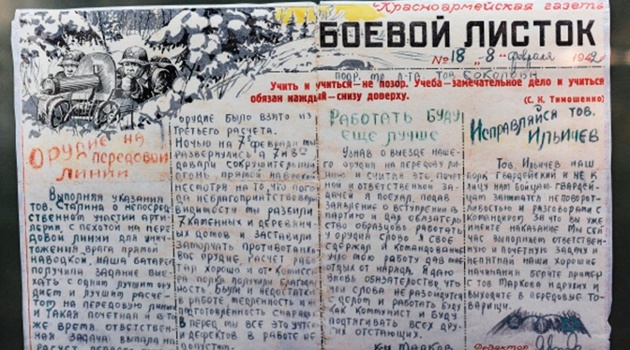 Красноармейская газета
БОЕВОЙ ЛИСТОК
№ 18 „8" февраля 1942
подр. тов. СОКОЛОВА
Учить и учиться—не позор. Учеба—замечательное дело и учиться
обязан каждый—снизу доверху.
(С. К. Тимошенко)
ОРУДИЕ НА
ПЕРЕДОВОЙ
ЛИНИИ
Выполняя указания
тов. Сталина о непосред-
ственном участии арти-
лерии, с пехотой на пе-
редовой линии для уни-
чтожения врага прямой
наводкой, наша батарея
получила задание вые-
хать с одним лучшим ору-
дием и лучшим расче-
том на передовую линию
и такая почетная и в то
же время ответствен-
ная задача выпала на
орудие было взято из
третьего расчета.
Ночью на 7 февраля мы
развернулись и в
давали сокрушительный
огонь, прямой наводкой
несмотря на то, что погода
неблагоприятствовала
видимости мы разбили
7 каменных и деревян-
ных домов и заставили
замолчать противотанко-
вое орудие, расчет работал
хорошо и от комиссара
полка получили благодар-
ность. Были и недостатки
в работе медленность и
подготовленность снаря-
в перед мы все это учтем
и дефектов в работе не
допустим.
РАБОТАТЬ БУДУ
ЕЩЕ ЛУЧШЕ
Узнав о выезде наше-
го орудия на передовую линию
и считая это, почетной
и ответственной за-
дачей я поехал, подав
заявление о вступлении в
партию и дал обязатель-
ство образцово работать
у орудия. Слово я свое
сдержал и командование
мою работу дав мне
отдых от наряда. Я даю
вновь обязательство, что
мои слова не разойдутся
с делом и работать буду
как Коммунист и буду
подтягивать всех дру-
гих отстающих.
Марков
ИСПРАВЛЯЙСЯ ТОВ.
ИЛЬИЧЕВ
Тов. Ильичев наш
полк гвардейский и не к
лицу нам бойцам гвардей-
цам заниматься неповорот-
ливостью и разговорами с
командиром. За что вы уже
имеете наказание. Мы сей-
час выполняем ответствен-
ную и почетную задачу и
хорошие
начинания берите пример
с тов Маркова и других и
выходите в передовые то-
варищи.
Редактор